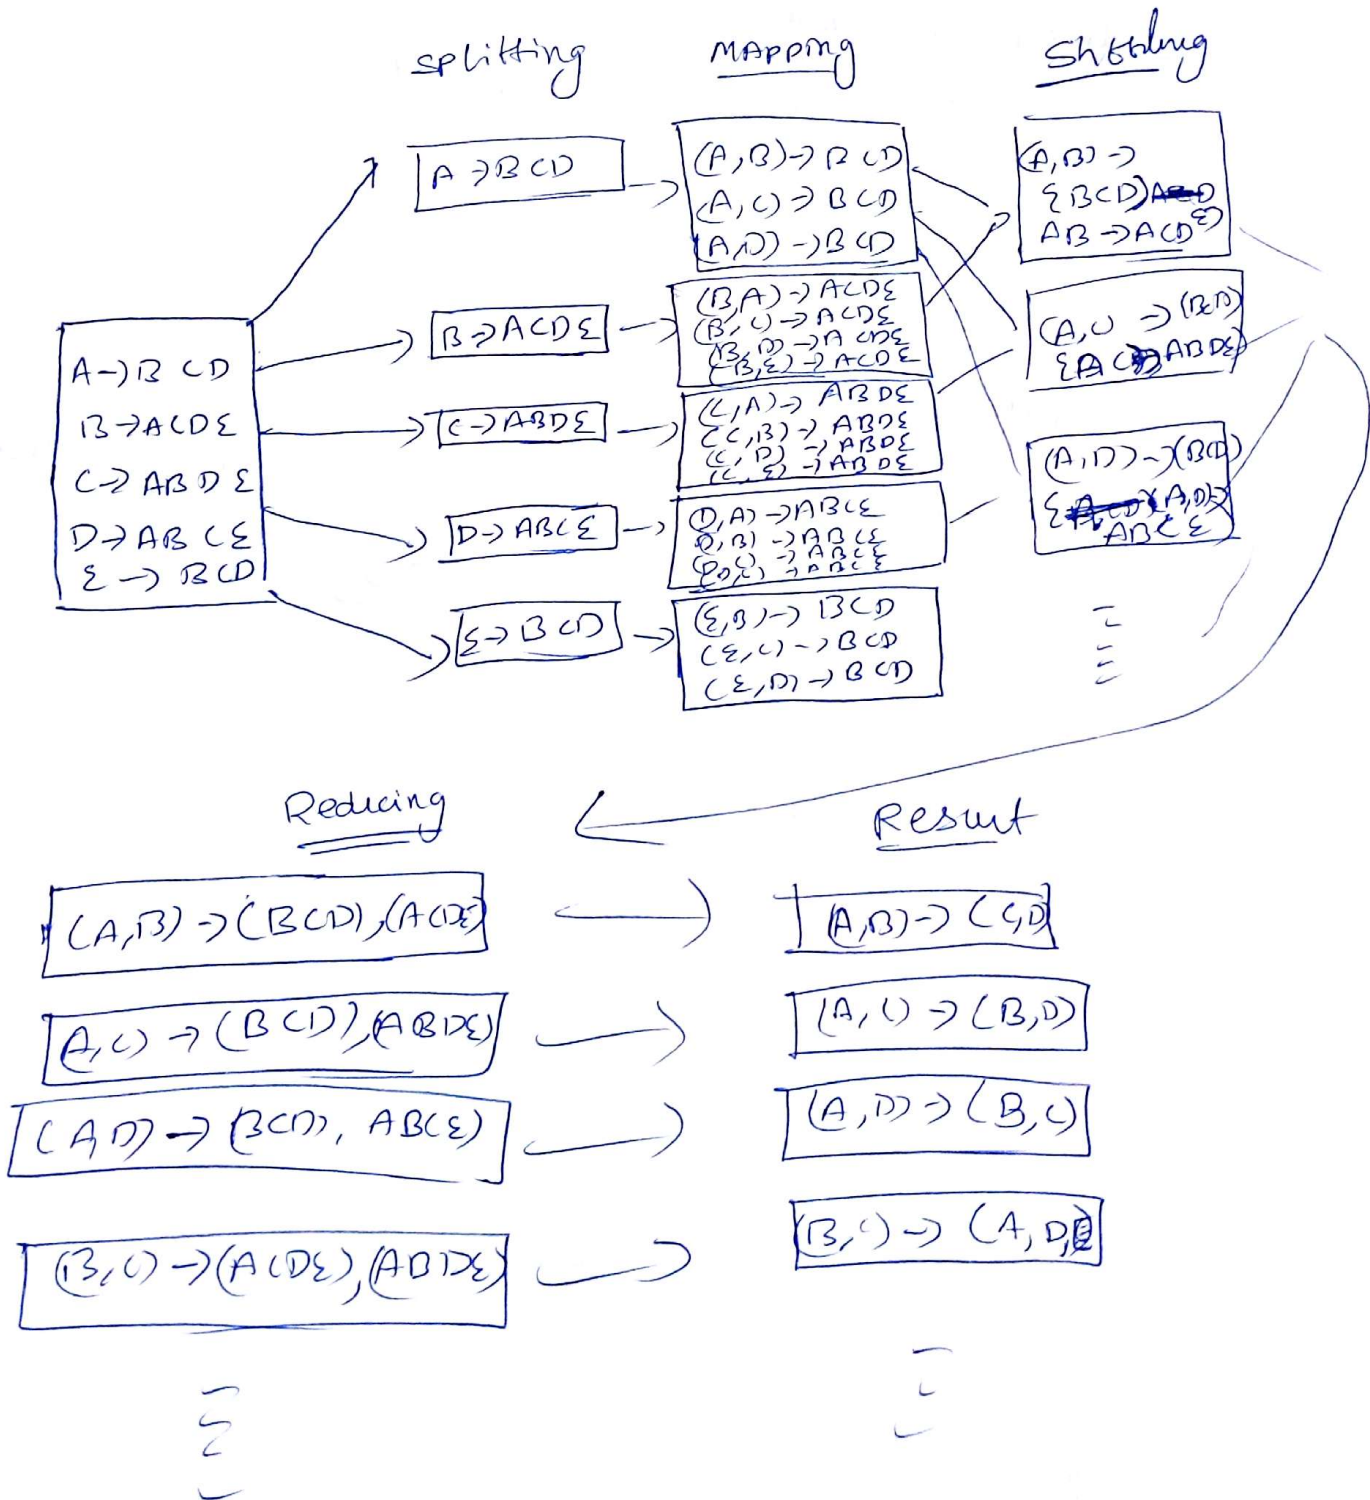 Splitting
Mapping
A → B C D
B → A C D E
C → A B D E
D → A B C E
E → B C D
A → B C D
B → A C D E
C → A B D E
D → A B C E
E → B C D
(A,B) → B C D
(A,C) → B C D
(A,D) → B C D
(B,A) → A C D E
(B,C) → A C D E
(B,D) → A C D E
(B,E) → A C D E
(C,A) → A B D E
(C,B) → A B D E
(C,D) → A B D E
(C,E) → A B D E
(D,A) → A B C E
(D,B) → A B C E
(D,C) → A B C E
(D,E) → A B C E
(E,B) → B C D
(E,C) → B C D
(E,D) → B C D
(A,B) →
{BCD)
AB → ACDE)
(A,C → (BCD)
ABDE)
(A,D) → (BCD)
{ (A,D) →
ABCE)
Reducing
Result
(A,B) → (BCD),(ACDE)
(A,B) → (C,D)
(A,C) → (BCD),(ABDE)
(A,C) → (B,D)
(A,D) → (BCD), ABCE)
(A,D) → (B,C)
(B,C) → (ACDE),(ABDE)
(B,C) → (A,D,E